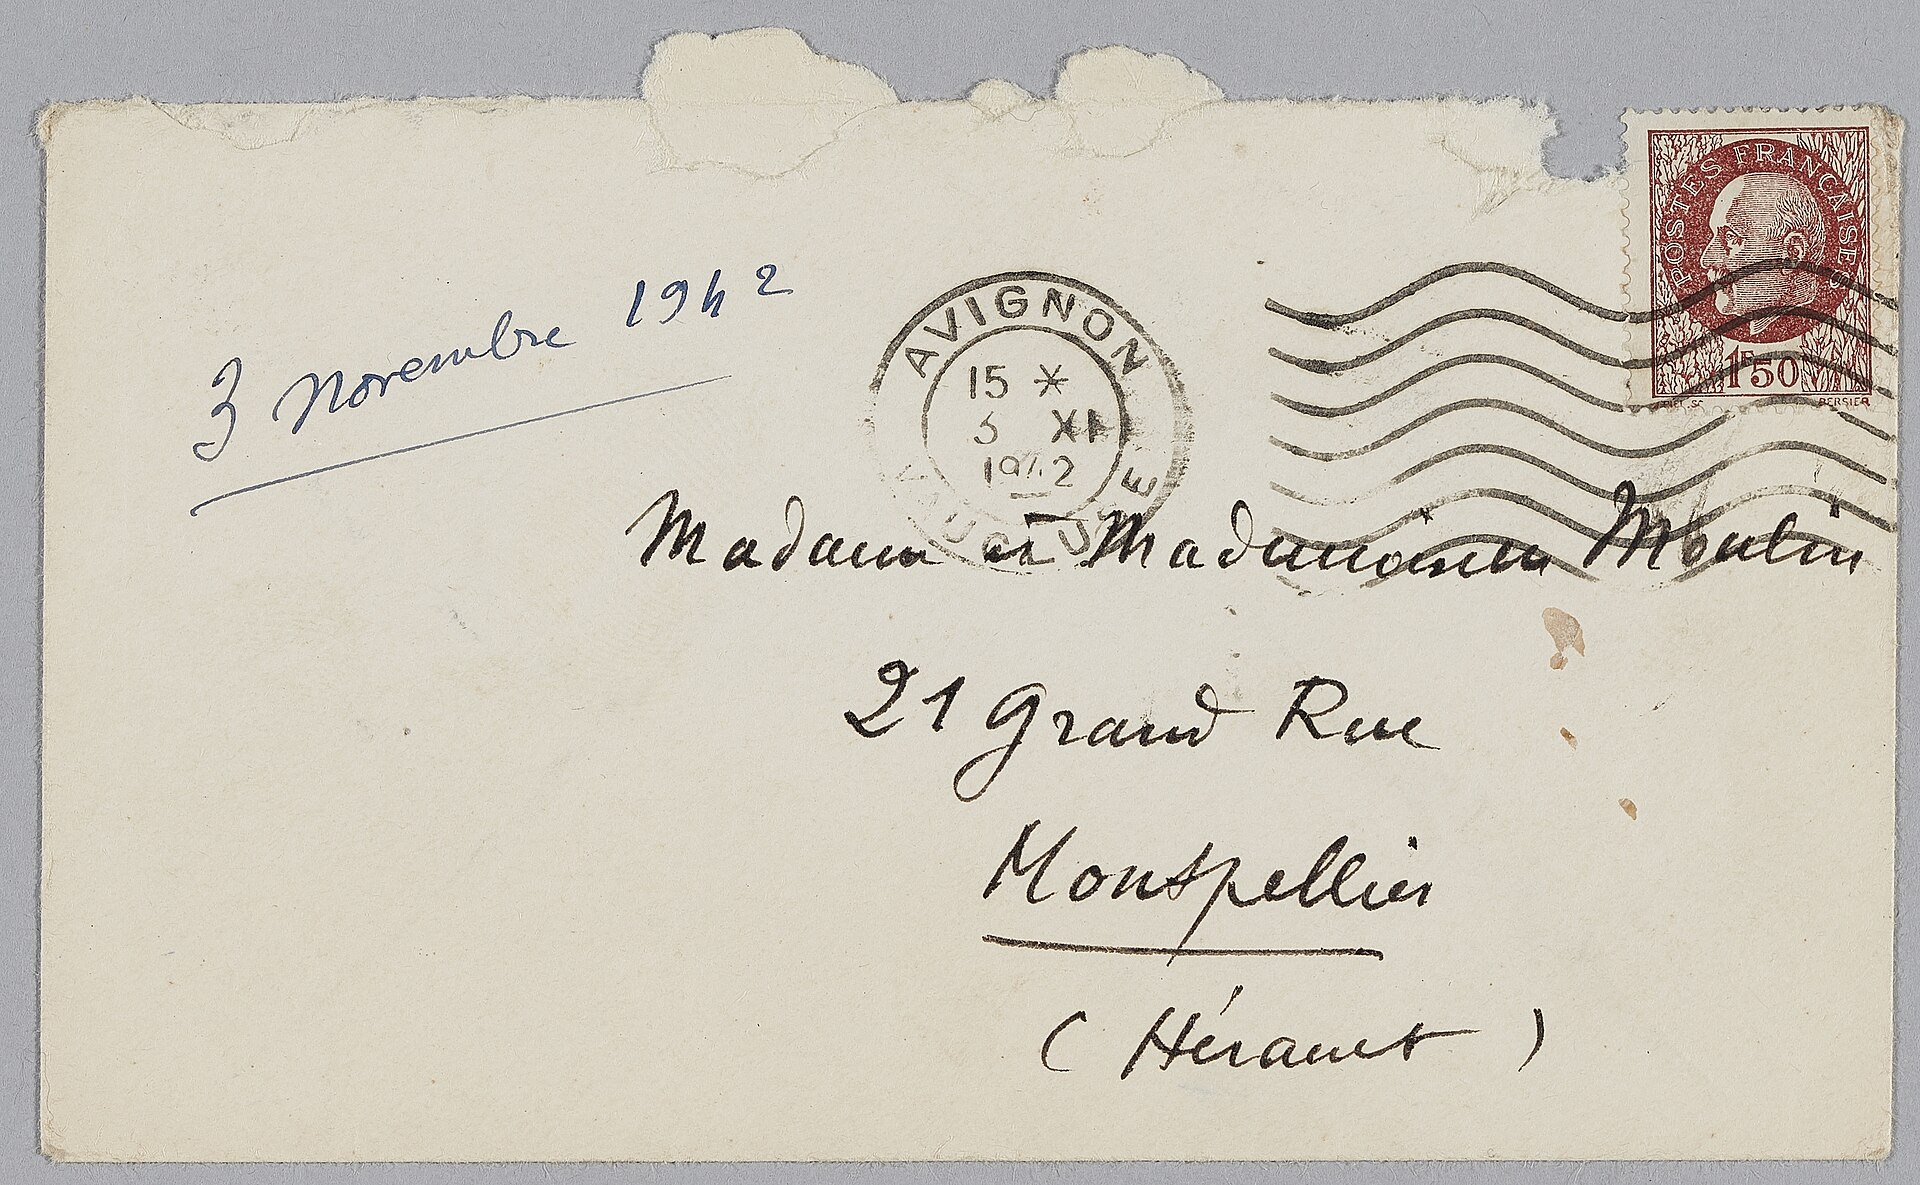 POSTES FRANÇAISES
1F50
BERSIER
3 Novembre 1942
AVIGNON
15 *
3 XI
1942
VAUCLUSE
Madame et Mademoiselle Moulin
21 Grand Rue
Montpellier
(Hérault)